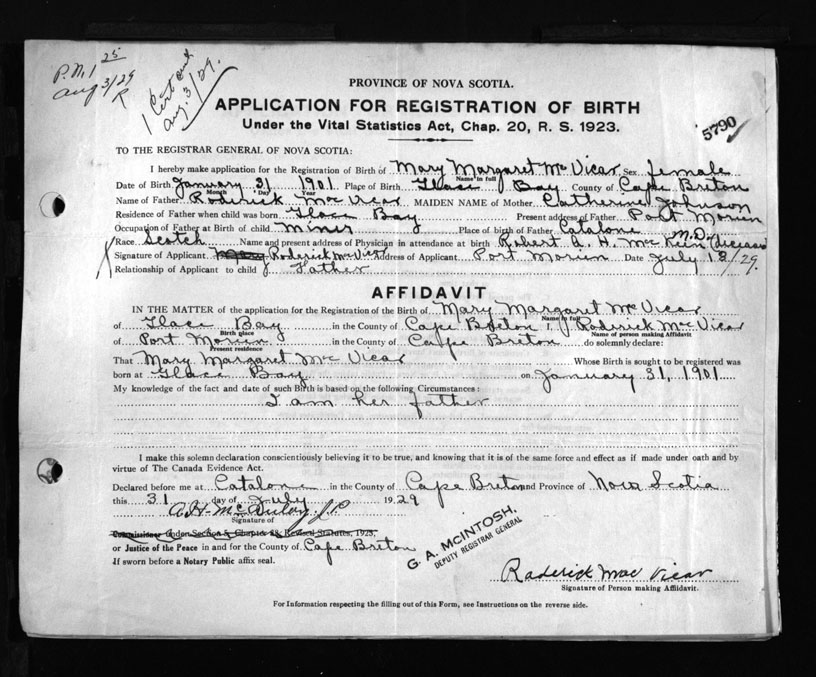 P.N. 1 25
Aug 3/29
1 Cert out
Aug. 3/29.
PROVINCE OF NOVA SCOTIA.
APPLICATION FOR REGISTRATION OF BIRTH
Under the Vital Statistics Act, Chap. 20, R. S. 1923.
5790
TO THE REGISTRAR GENERAL OF NOVA SCOTIA:
I hereby make application for the Registration of Birth of Mary Margaret Mc Vicar Sex female
Name in full
Date of Birth January 31 1901 Place of Birth Glace Bay County of Cape Breton
Month Day Year
Name of Father Roderick Mc Vicar MAIDEN NAME of Mother Catherine Johnson
Residence of Father when child was born Glace Bay Present address of Father Port Morien
Occupation of Father at Birth of child miner Place of birth of Father Catalone
Race Scotch Name and present address of Physician in attendance at birth Robert A. H. Mc Kein M.D. (Deceased
Signature of Applicant Mary Roderick Mc Vicar Address of Applicant Port Morien Date July 18/29.
Relationship of Applicant to child Father
AFFIDAVIT
IN THE MATTER of the application for the Registration of the Birth of Mary Margaret Mc Vicar
Name in full
of Glace Bay in the County of Cape Breton, I, Roderick Mc Vicar
Birth place Name of person making Affidavit
of Port Morien in the County of Cape Breton do solemnly declare:
Present residence
That Mary Margaret Mc Vicar Whose Birth is sought to be registered was
born at Glace Bay on January 31, 1901
My knowledge of the fact and date of such Birth is based on the following Circumstances:
I am her father
I make this solemn declaration conscientiously believing it to be true, and knowing that it is of the same force and effect as if made under oath and by
virtue of The Canada Evidence Act.
Declared before me at Catalone in the County of Cape Breton and Province of Nova Scotia
this 31 day of July 1929
A. H. McAulay J.P.
Signature of
Commissioner under Section 5, Chapter 38, Revised Statutes, 1923,
or Justice of the Peace in and for the County of Cape Breton
If sworn before a Notary Public affix seal.
G. A. McINTOSH,
DEPUTY REGISTRAR GENERAL
Roderick Mac Vicar
Signature of Person making Affidavit.
For Information respecting the filling out of this Form, see Instructions on the reverse side.